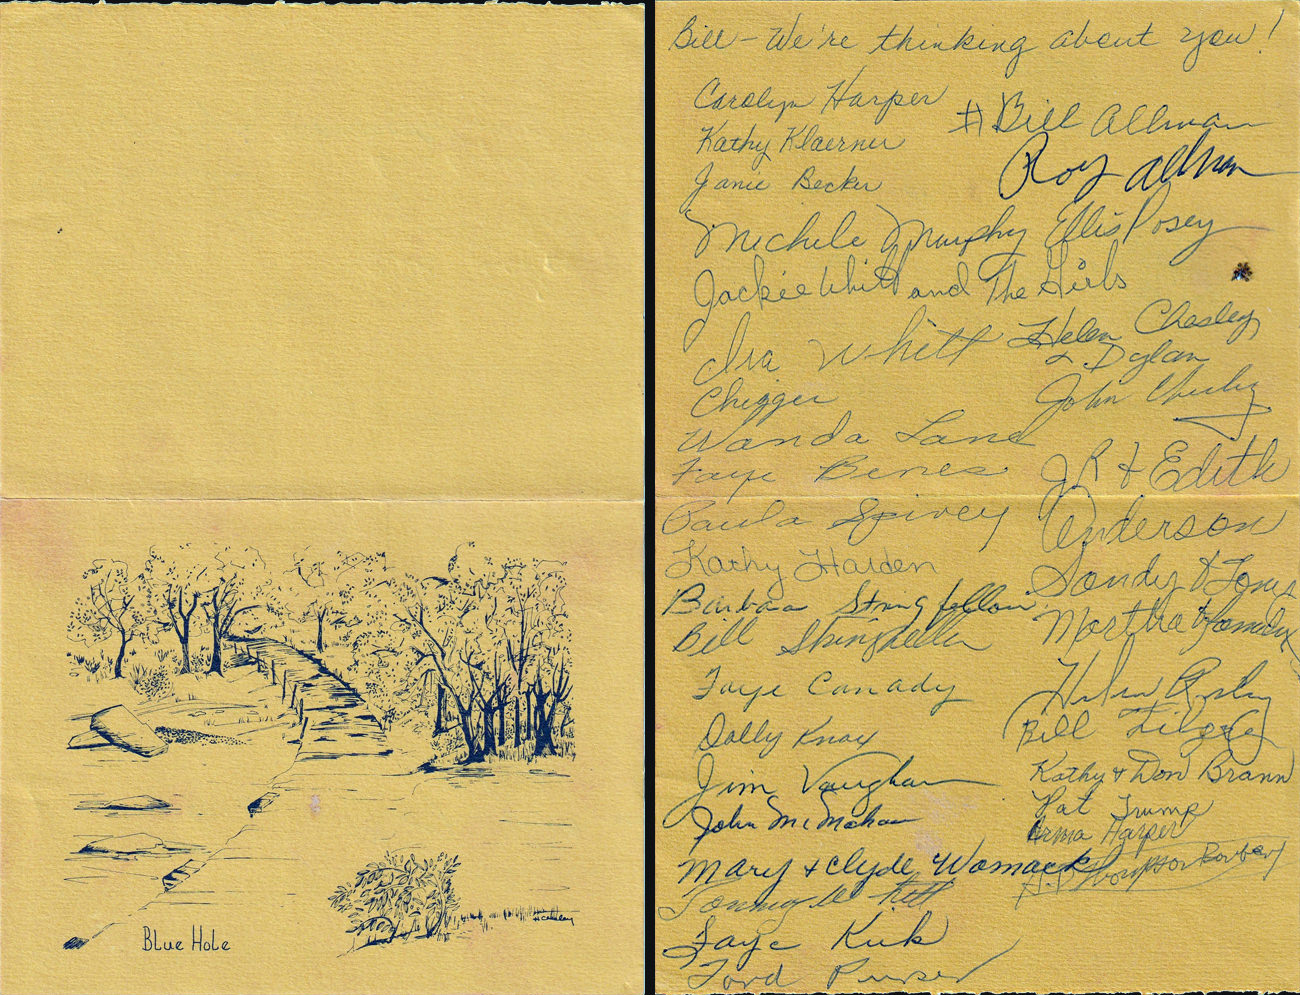 Blue Hole
Bill - We're thinking about you!
Carolyn Harper
Kathy Klaerner
Janie Becker
Michele Murphy
Jackie Whitt and The Girls
Ira Whitt
Chigger
Wanda Lane
Faye Benes
Paula Spivey
Kathy Harden
Barbara Stringfellow
Bill Stringfellow
Faye Canady
Dolly Knox
Jim Vaughan
John McMahan
Mary & Clyde Womack
Tommy
Faye Kirk
Ford
Bill Allman
Roy Allman
Ellis Posey
Helen Chesley
& Dylan
John Chesley
JR & Edith
Anderson
Sandy & Tony
Martha &
Helen
Bill
Kathy & Don Brann
Pat Trump
Erma Harper